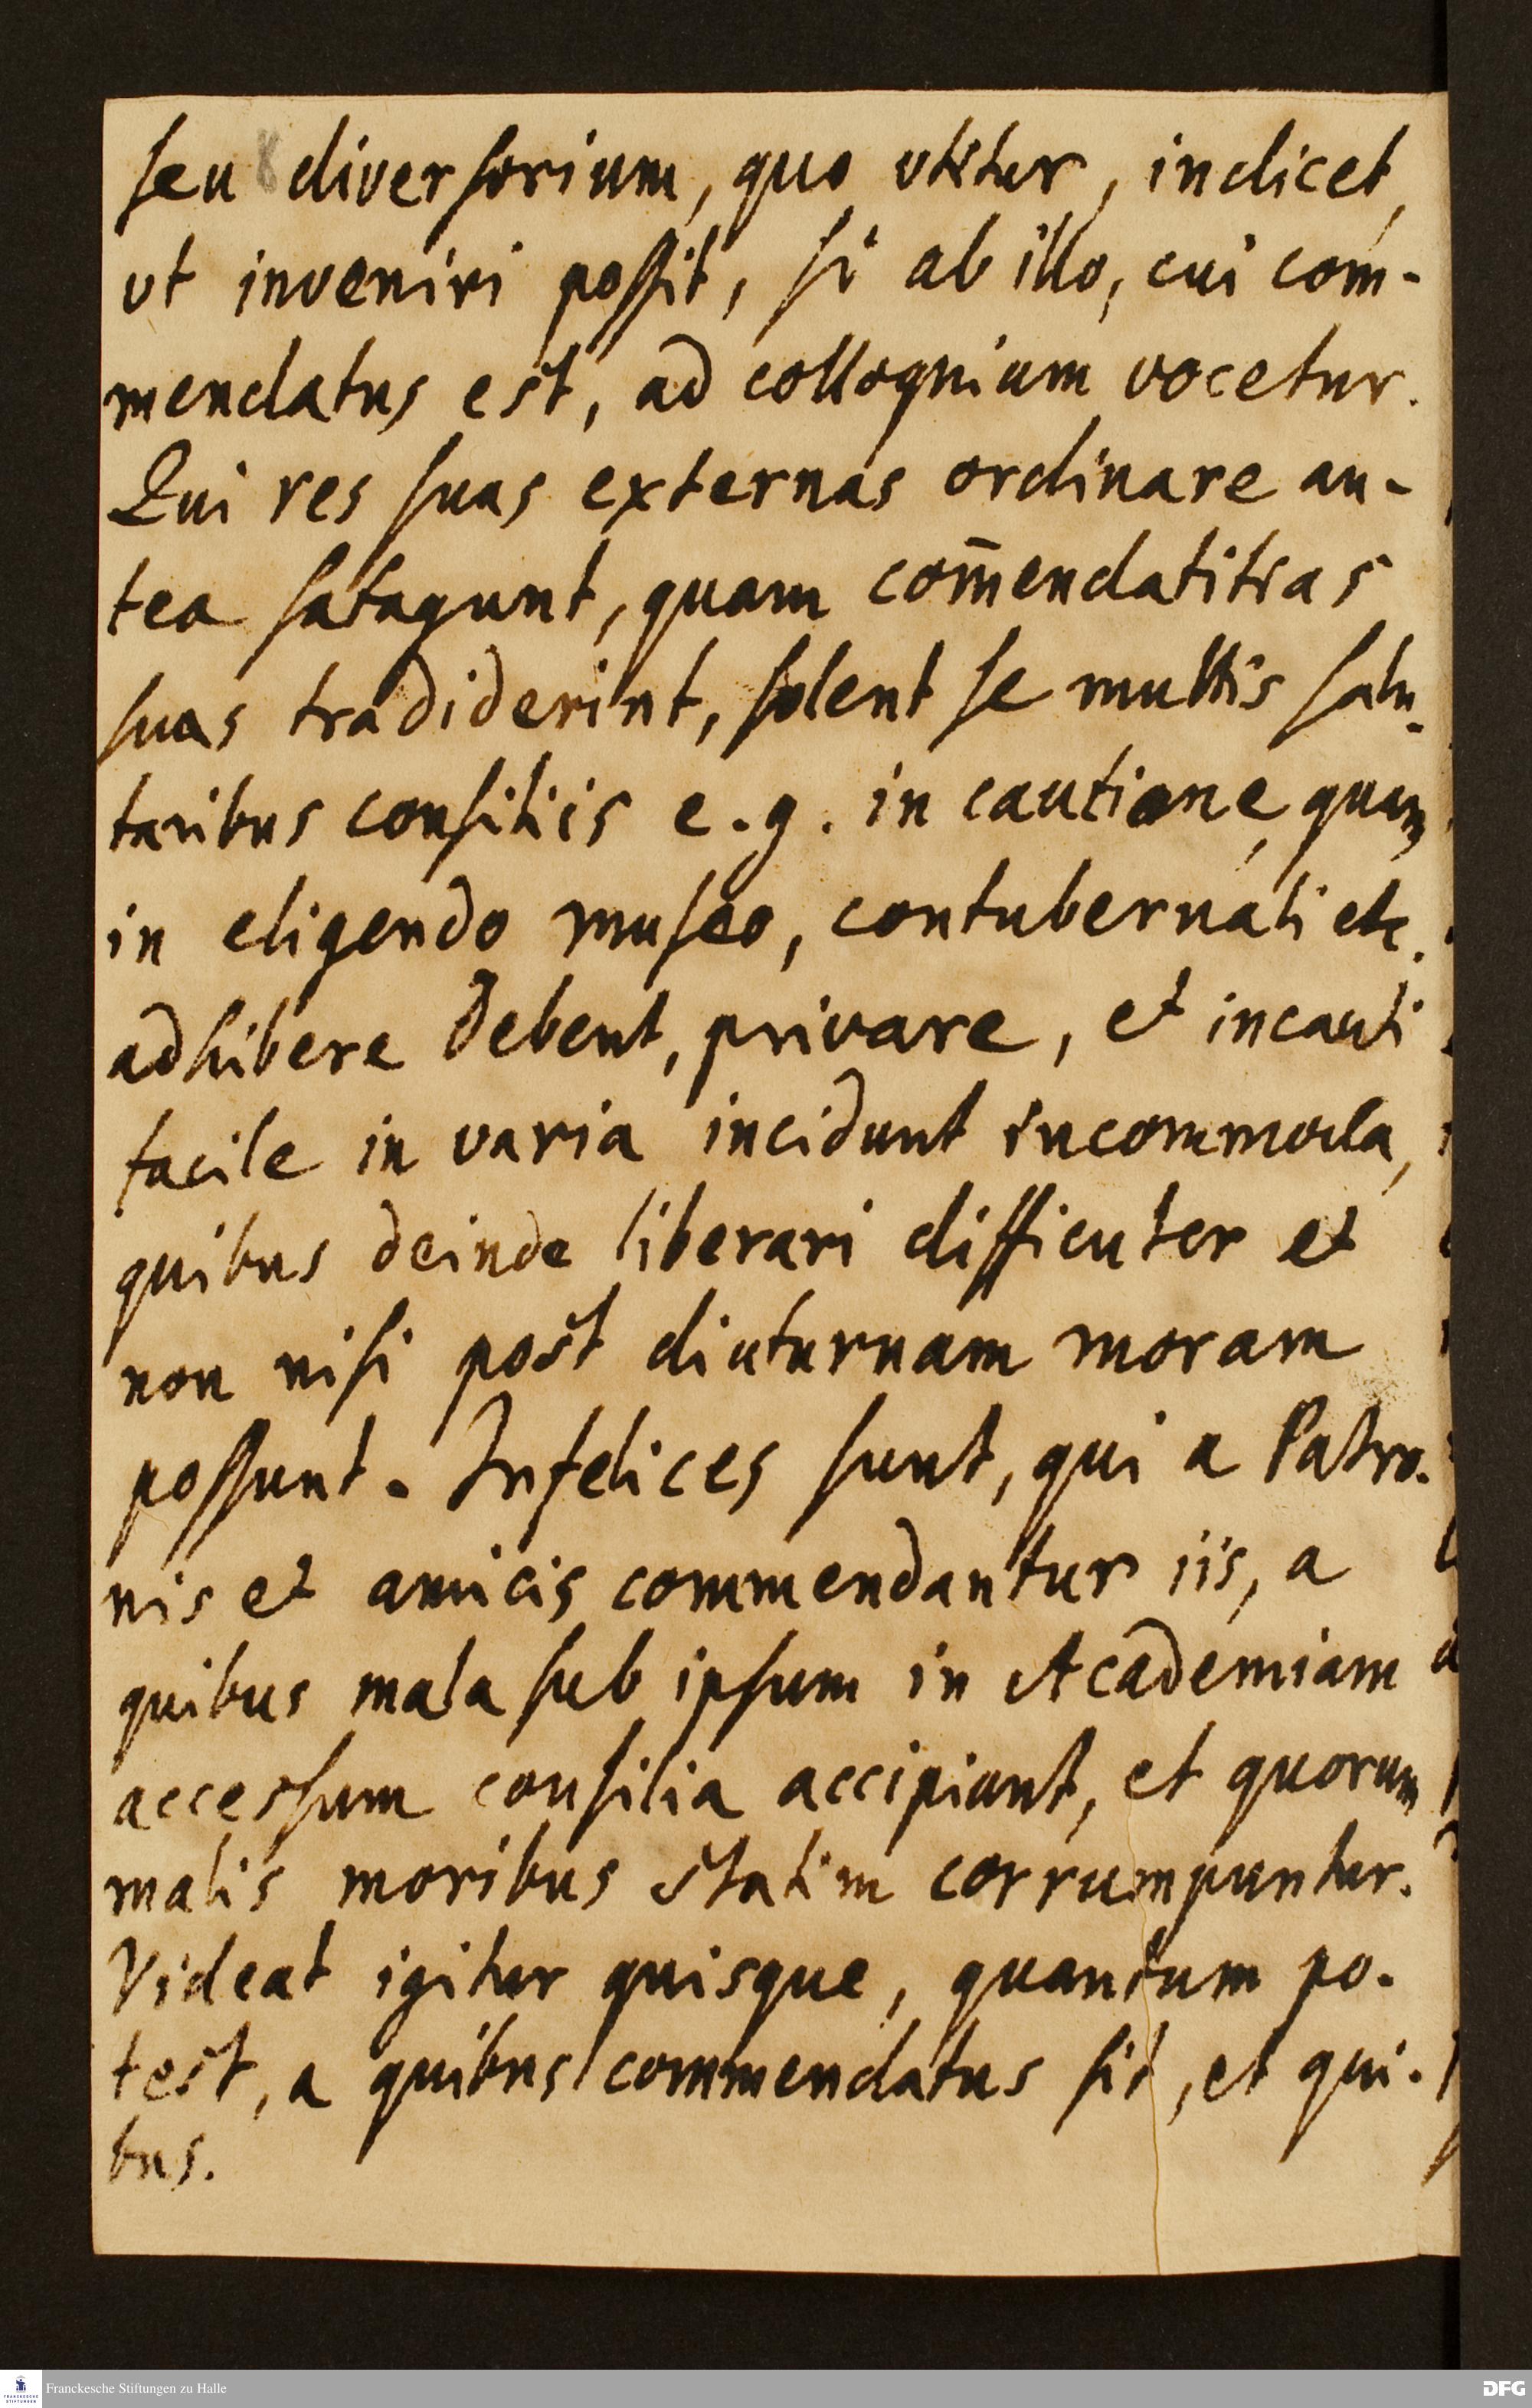 seu diversorium, quo vtitur, indicet,
vt inveniri possit, si ab illo, cui com-
mendatus est, ad colloquium vocetur.
Qui res suas externas ordinare an-
tea satagunt, quam com̄endatitias
suas tradiderint, solent se multis salu-
taribus consiliis e. g. in cautione, quam
in eligendo museo, contubernali etc.
adhibere debent, privare, et incauti
facile in varia incidunt incommoda,
quibus deinde liberari difficulter et
non nisi post diuturnam moram
possunt. Infelices sunt, qui a Patro-
nis et amicis commendantur iis, a
quibus mala sub ipsum in Academiam
accessum consilia accipiunt, et quorum
malis moribus statim corrumpuntur.
Videat igitur quisque, quantum po-
test, a quibus commendatus sit, et qui-
bus.
Franckesche Stiftungen zu Halle
DFG